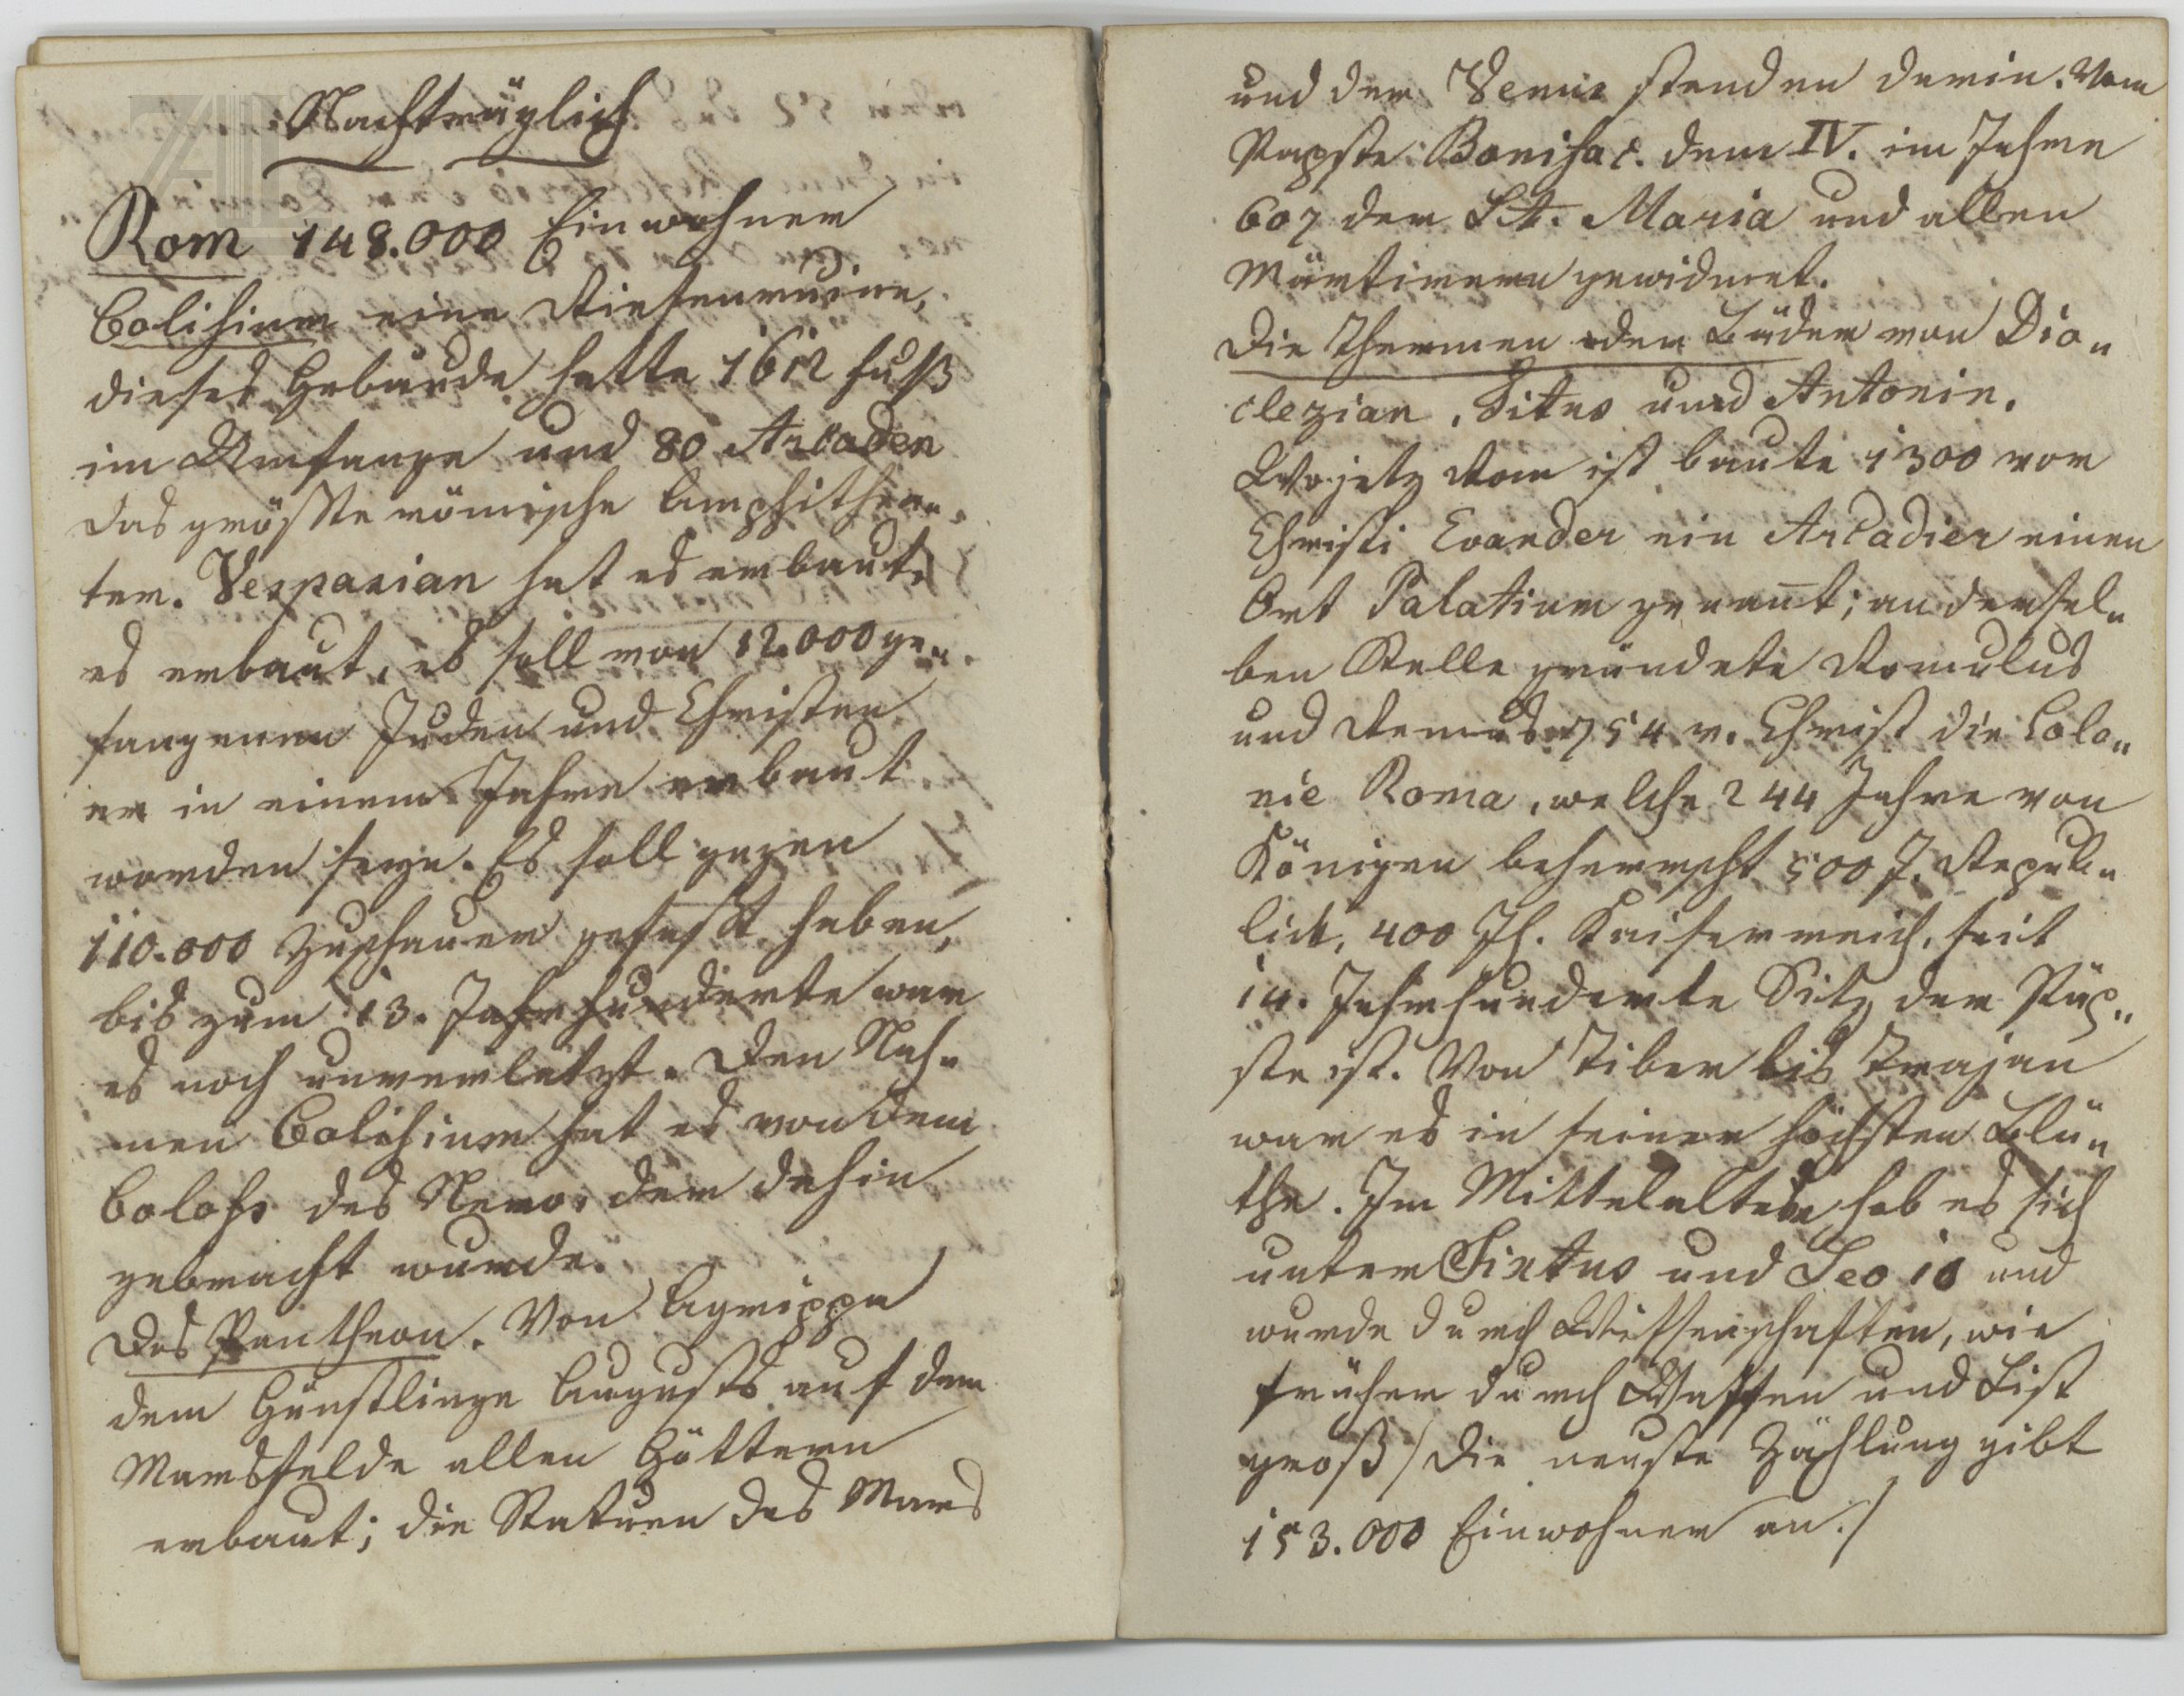 Nachträglich
Rom 148.000 Einwohner
Colisium eine Riesenruine,
dieses Gebäude hatte 1612 Fuß
im Umfange und 80 Arcaden
das größte römische Amphithea-
ter. Vespasian hat es erbaut,
es erbaut, es soll von 12.000 ge-
fangenen Juden und Christen
er in einem Jahre erbaut
worden seyn. Es soll gegen
110.000 Zuschauer gefaßt haben,
bis zum 13. Jahrhunderte war
es noch unverletzt. Den Nah-
men Colisium hat es von dem
Coloß des Nero, der dahin
gebracht wurde.
Das Pantheon. Von Agrippa
dem Günstlinge Augusts auf dem
Marsfelde allen Göttern
erbaut; die Statuen des Mars
und der Venus standen darin. Vom
Papste Bonifac. dem IV. im Jahre
607 der St. Maria und allen
Märtirern gewidmet.
Die Thermen oder Bäder von Dio-
clezian, Titus und Antonin.
Wo jetz Rom ist baute 1300 vor
Christi Evander ein Arcadier einen
Ort Palatium genan̄t; an dersel-
ben Stelle gründete Romulus
und Remus 754 v. Christ die Colo-
nie Roma, welche 244 Jahre von
Königen beherrscht 500 J. Repub-
lick, 400 Jh. Kaiserreich, seit
14. Jahrhunderte Sitz der Päp-
ste ist. Von Tiber bis Trajan
war es in seiner höchsten Blü-
the. Im Mittelalter hob es sich
unter Sixtus und Leo 10 und
wurde durch Wissenschaften, wie
früher durch Waffen und List
groß / die neuste Zählung gibt
153.000 Einwohner an./